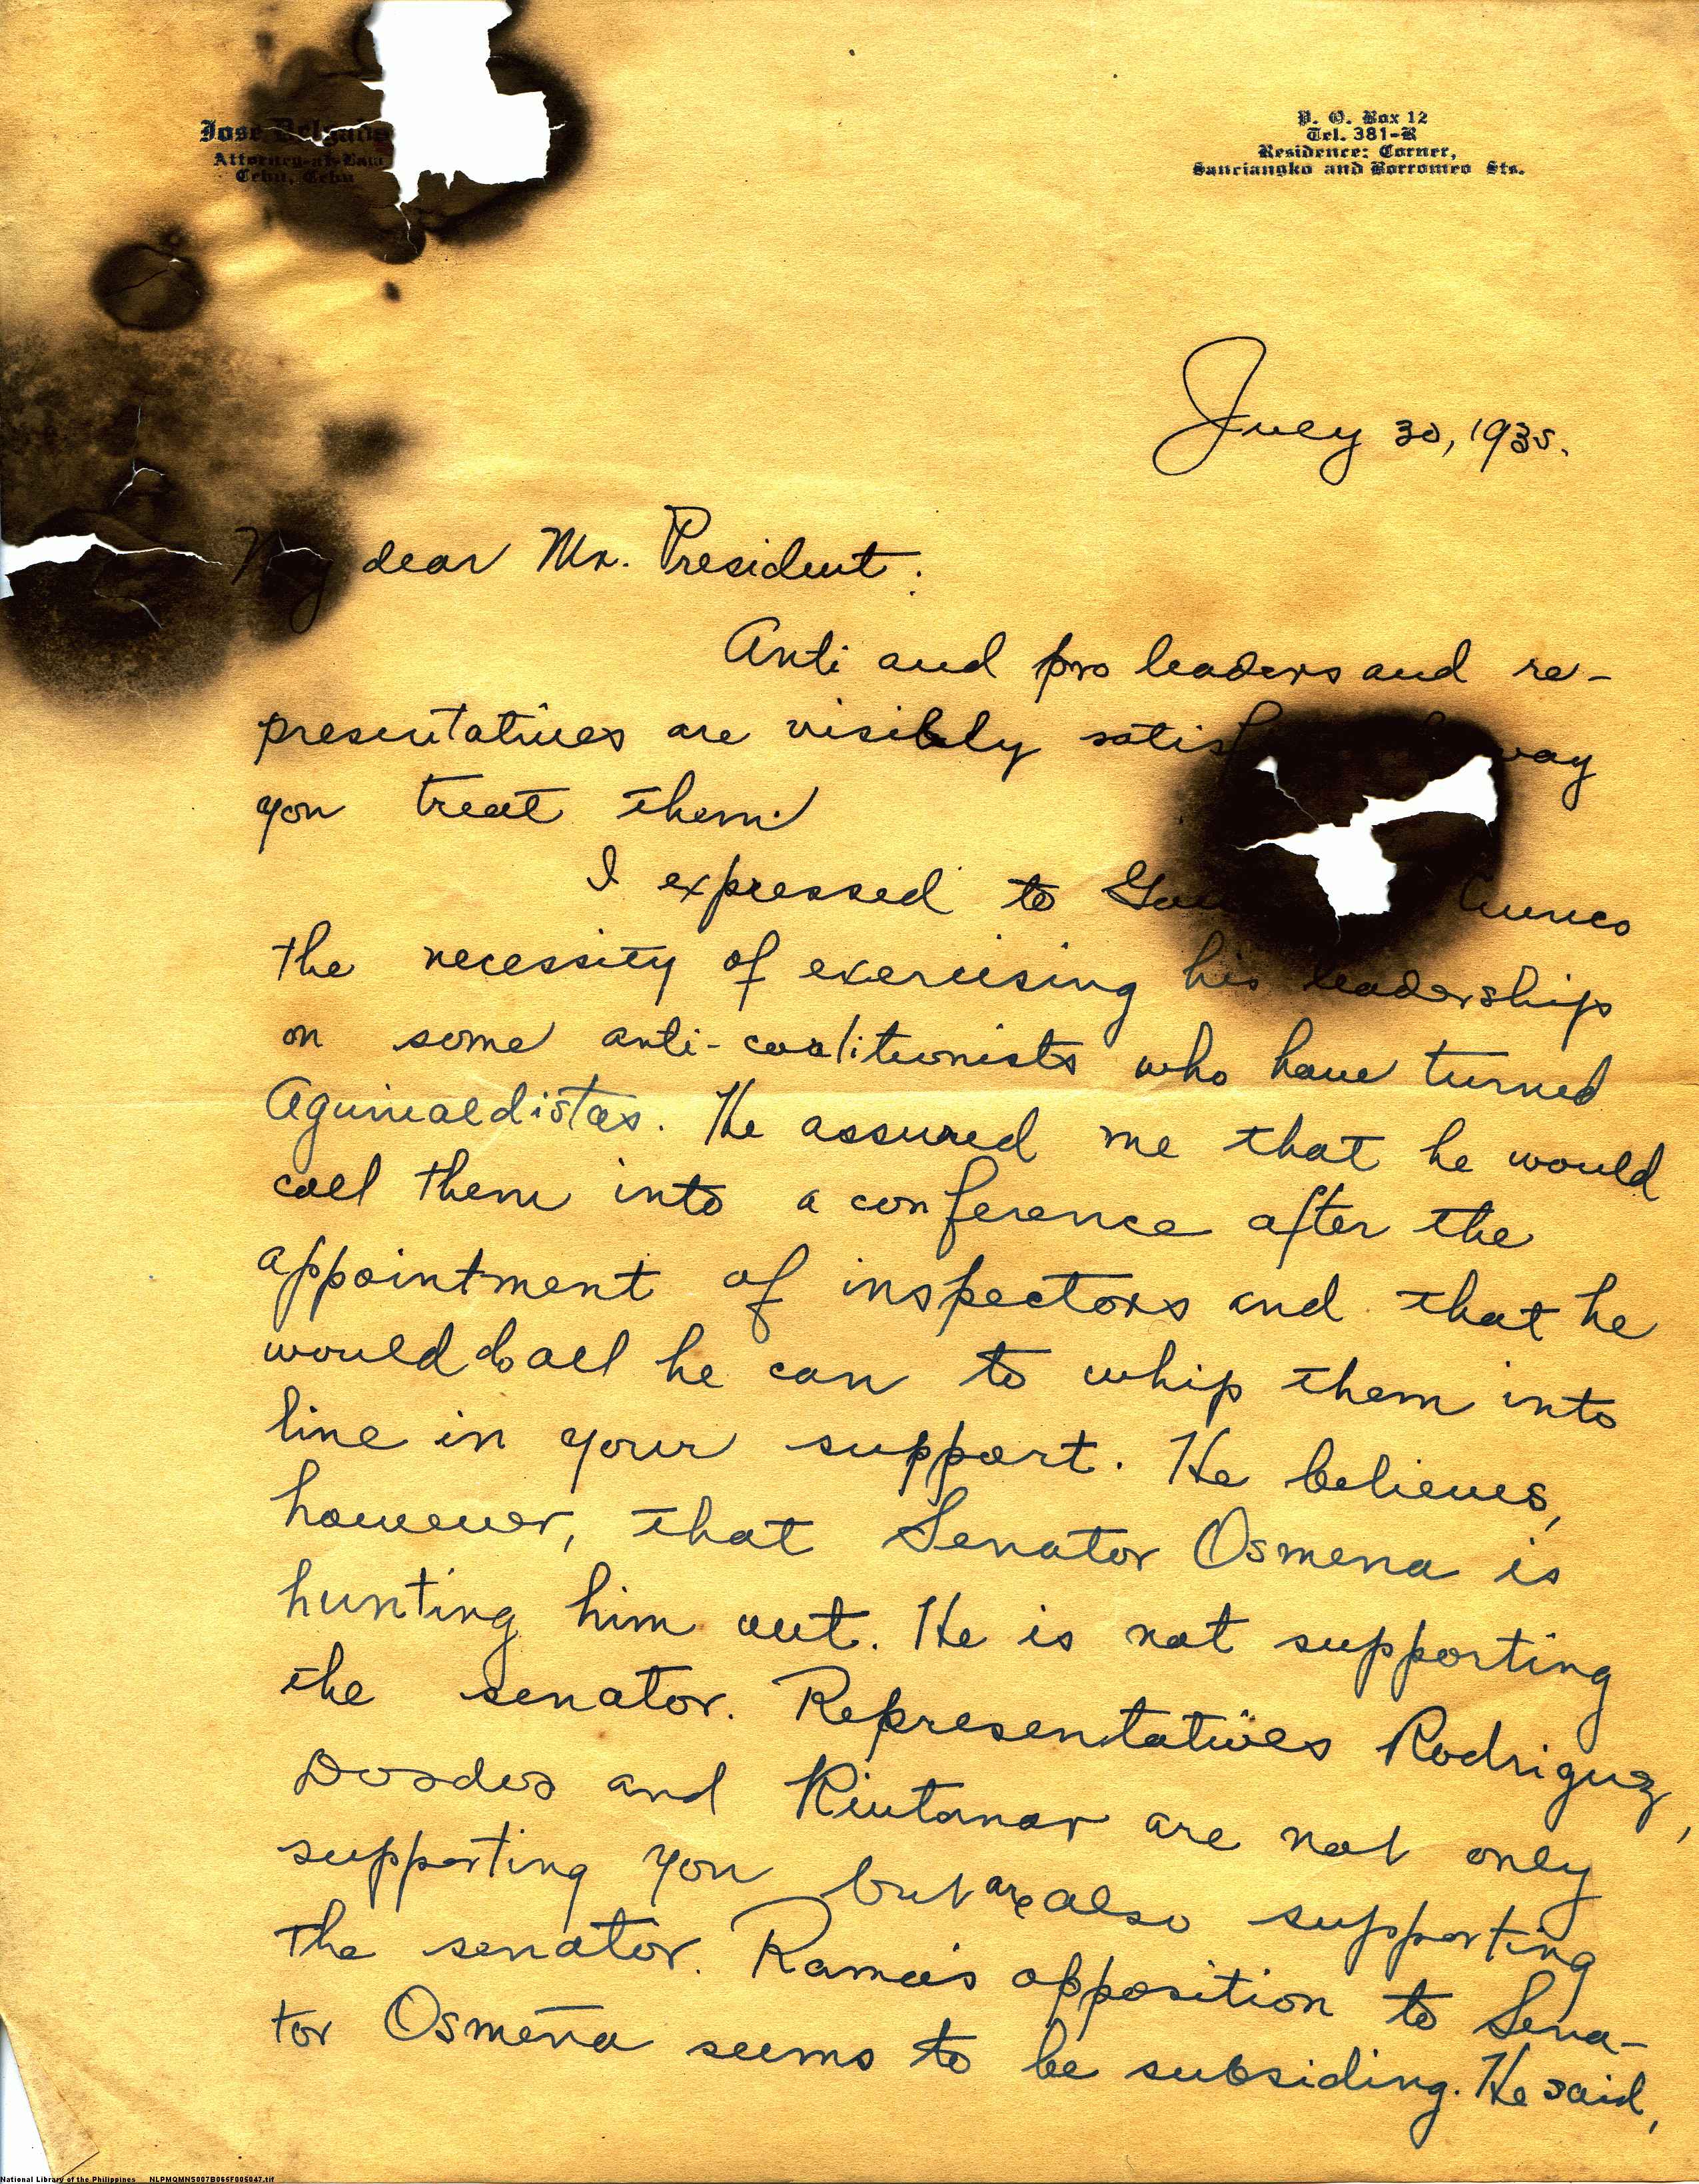 Jose Delgado
Attorney-at-Law
Cebu, Cebu
P. O. Box 12
Tel. 381-R
Residence: Corner,
Sanciangko and Borromeo Sts.
July 30, 1935.
My dear Mr. President:
Anti and pro leaders and re-
presentatives are visibly way
you treat them.
I expressed to
the necessity of exercising his leadership
on some anti-coalitionists who have turned
Aguinaldistas. He assured me that he would
call them into a conference after the
appointment of inspectors and that he
would do all he can to whip them into
line in your support. He believes,
however, that Senator Osmena is
hunting him out. He is not supporting
the senator. Representatives Rodriguez,
and Kintanar are not only
supporting you but are also supporting
the senator. Rama's opposition to Sena-
tor Osmeña seems to be subsiding. He said,
National Library of the Philippines NLPMQMNS007B065F005047.tif